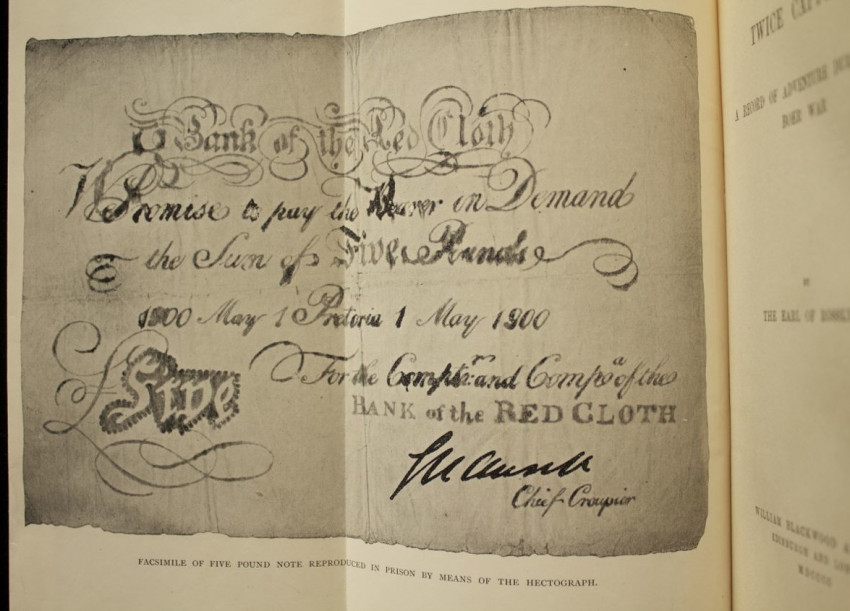 Bank of the Red Cloth
We Promise to pay the Bearer on Demand
the Sum of Five Pounds
1900 May 1 Pretoria 1 May 1900
Five
For the Comptr. and Compa of the
BANK of the RED CLOTH
Chief Croupier
FACSIMILE OF FIVE POUND NOTE REPRODUCED IN PRISON BY MEANS OF THE HECTOGRAPH.
TWICE CAPT
A RECORD OF ADVENTURE DUR
BOER WAR
BY
THE EARL OF ROSSL
WILLIAM BLACKWOOD &
EDINBURGH AND LON